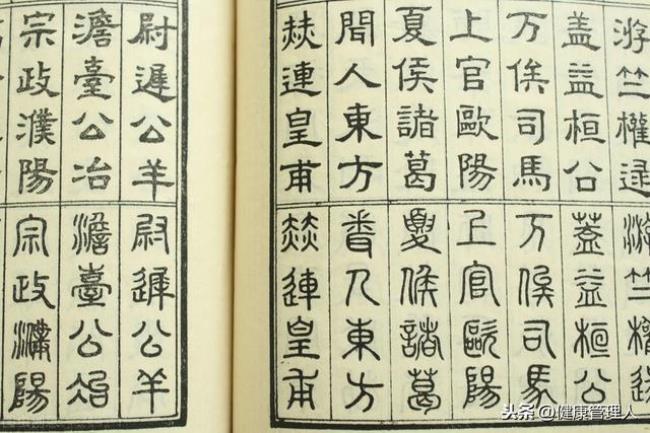 游竺權逯
盖益桓公
万俟司馬
上官歐陽
夏侯諸葛
聞人東方
赫連皇甫
游竺權逯
蓋益桓公
万俟司馬
上官歐陽
夏侯諸葛
聞人東方
赫連皇甫
尉遲公羊
澹臺公冶
宗政濮陽
尉遲公羊
澹臺公冶
宗政濮陽
头条 @健康管理人